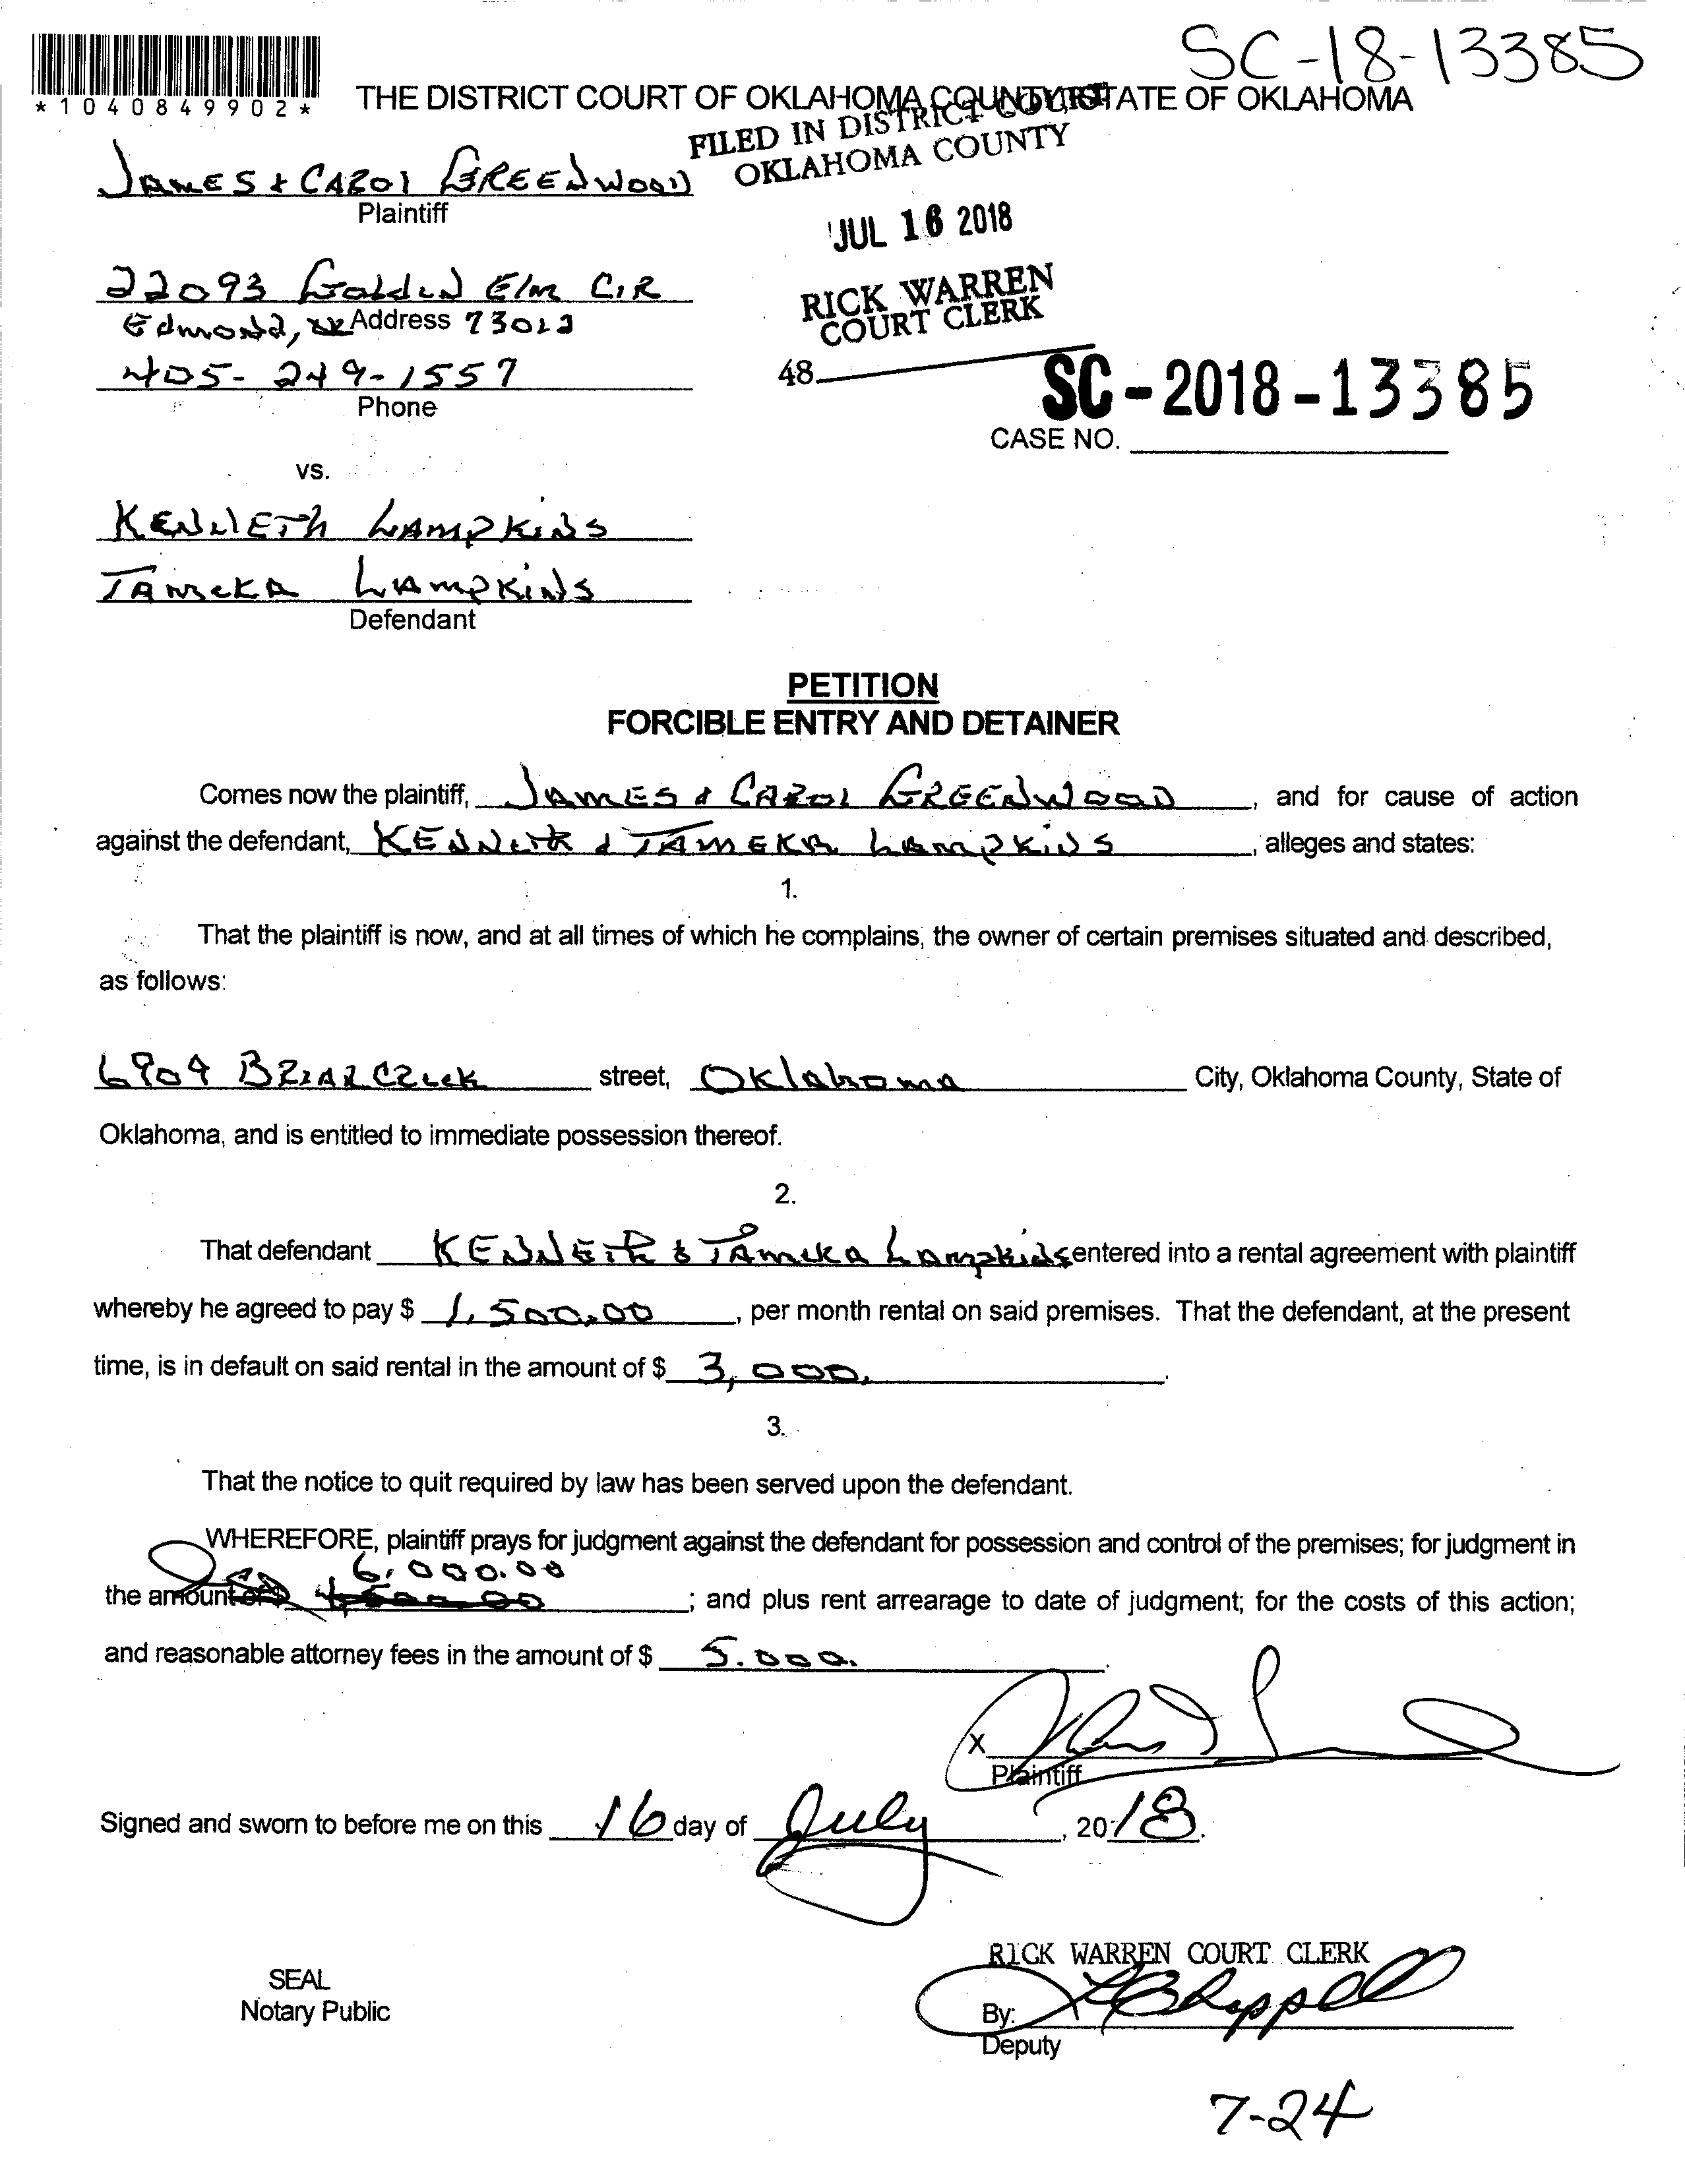 SC-18-13385
*1040849902*
THE DISTRICT COURT OF OKLAHOMA COUNTY, STATE OF OKLAHOMA
FILED IN DISTRICT COURT
OKLAHOMA COUNTY
JAMES & CAROl GREENWOOD
Plaintiff
JUL 16 2018
22093 Golden Elm CIR
RICK WARREN
COURT CLERK
Edmond, OK Address 73013
405-249-1557
48
Phone
SC-2018-13385
CASE NO.
vs.
KENNETH LAMPKINS
TAMEKA LAMPKINS
Defendant
PETITION
FORCIBLE ENTRY AND DETAINER
Comes now the plaintiff, JAMES & CAROL GREENWOOD, and for cause of action
against the defendant, KENNETH & TAMEKA LAMPKINS, alleges and states:
1.
That the plaintiff is now, and at all times of which he complains, the owner of certain premises situated and described,
as follows:
6909 BRIARCREEK street, OKlahoma City, Oklahoma County, State of
Oklahoma, and is entitled to immediate possession thereof.
2.
That defendant KENNETH & TAMEKA LAMPKINS entered into a rental agreement with plaintiff
whereby he agreed to pay $ 1,500.00, per month rental on said premises. That the defendant, at the present
time, is in default on said rental in the amount of $ 3,000.
3.
That the notice to quit required by law has been served upon the defendant.
WHEREFORE, plaintiff prays for judgment against the defendant for possession and control of the premises; for judgment in
6,000.00
the amount of $ 4500.00; and plus rent arrearage to date of judgment; for the costs of this action;
and reasonable attorney fees in the amount of $ 5.000.
X
Plaintiff
Signed and sworn to before me on this 16 day of July, 2018.
RICK WARREN COURT CLERK
SEAL
Notary Public
By:
Deputy
7-24